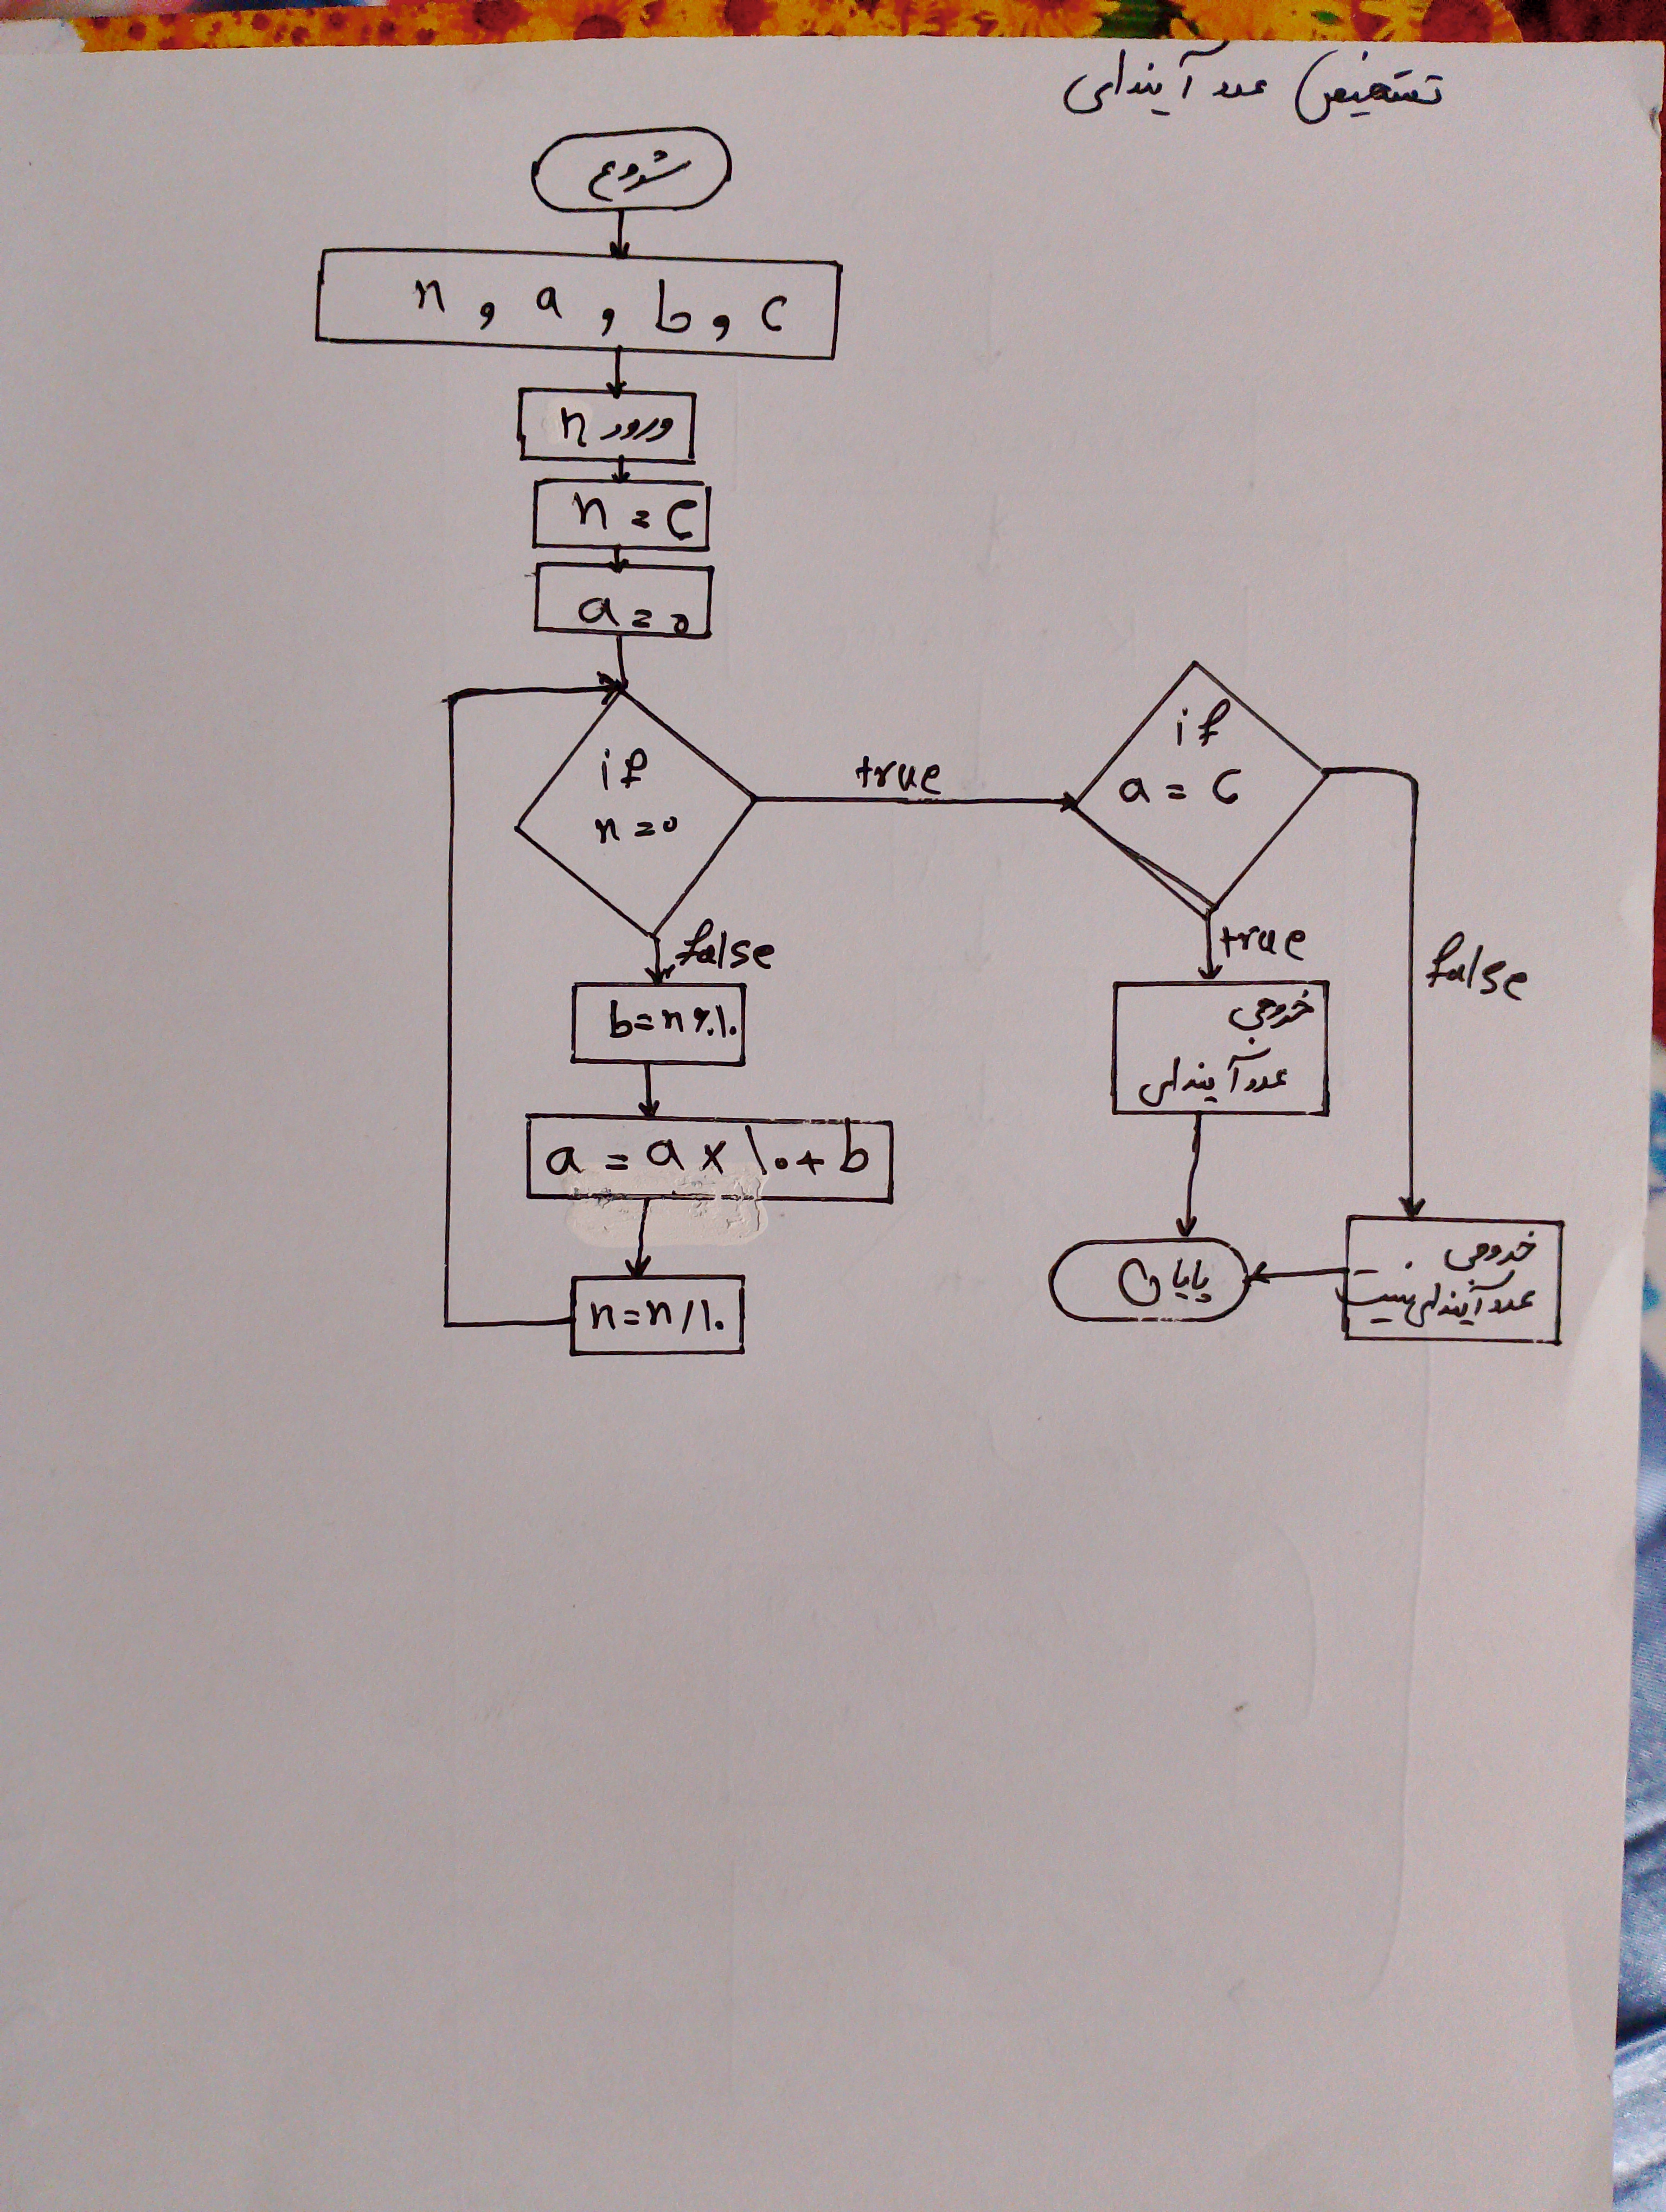 تشخیص عدد آیندای
شروع
n , a , b , c
ورود n
n = c
a = ۰
if
n = ۰
true
false
b = n % ۱۰
a = a × ۱۰ + b
n = n / ۱۰
if
a = c
true
false
خروجی
عدد آیندای
خروجی
عدد آیندای نیست
پایان